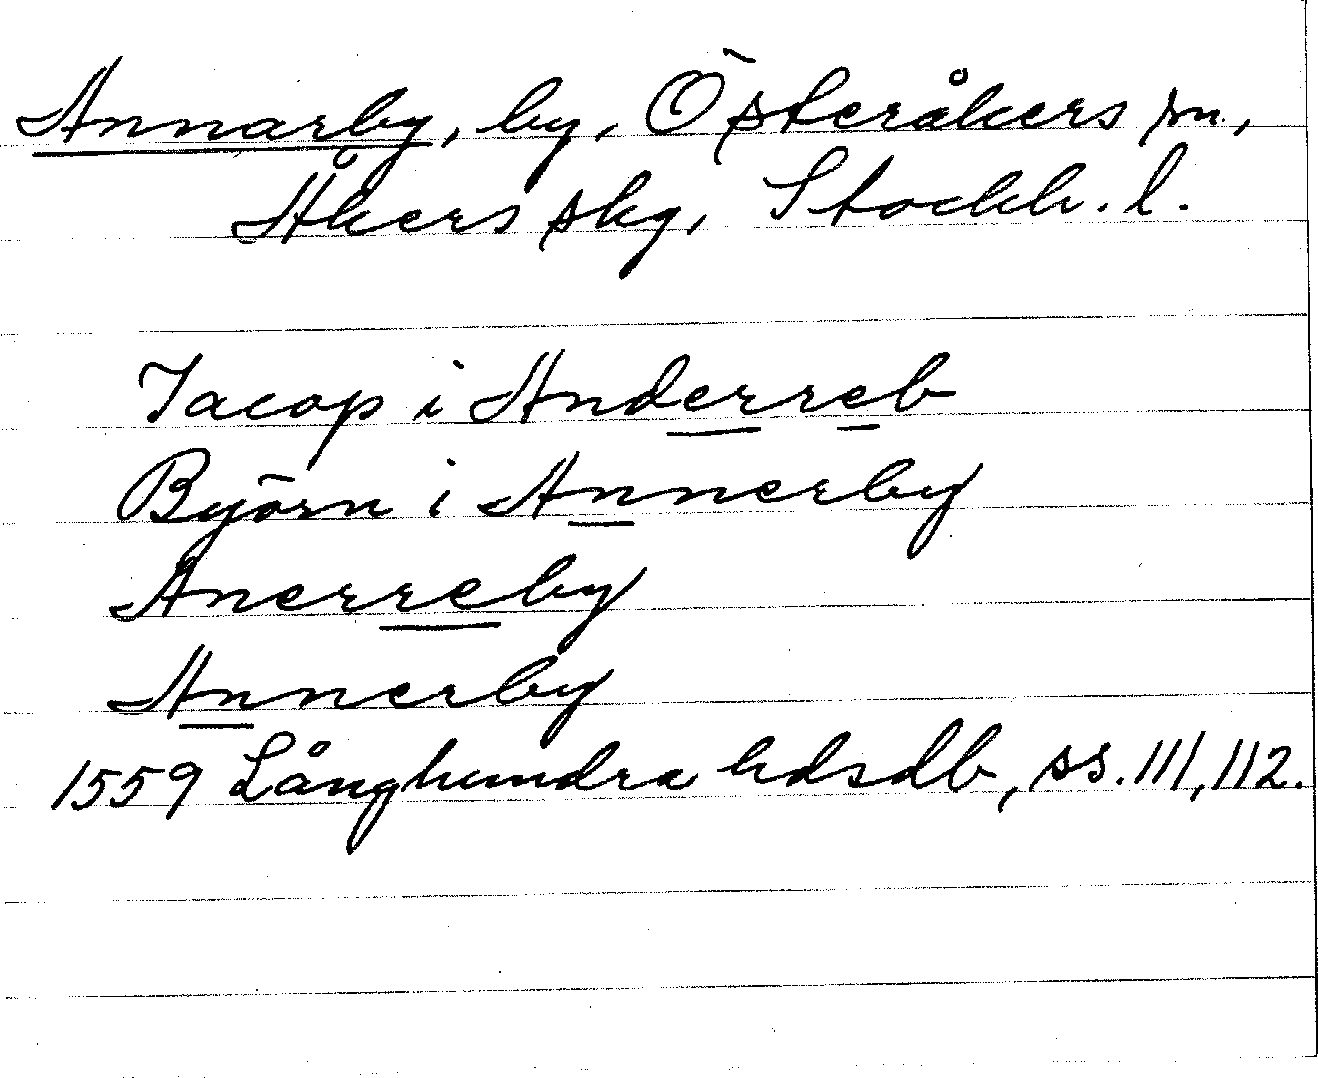 Annarby, by, Österåkers sn.,
Åkers skg, Stockh. l.
Jacop i Anderreb
Byörn i Annerby
Anerreby
Annerby
1559 Långhundra hdsdb, ss. 111, 112.